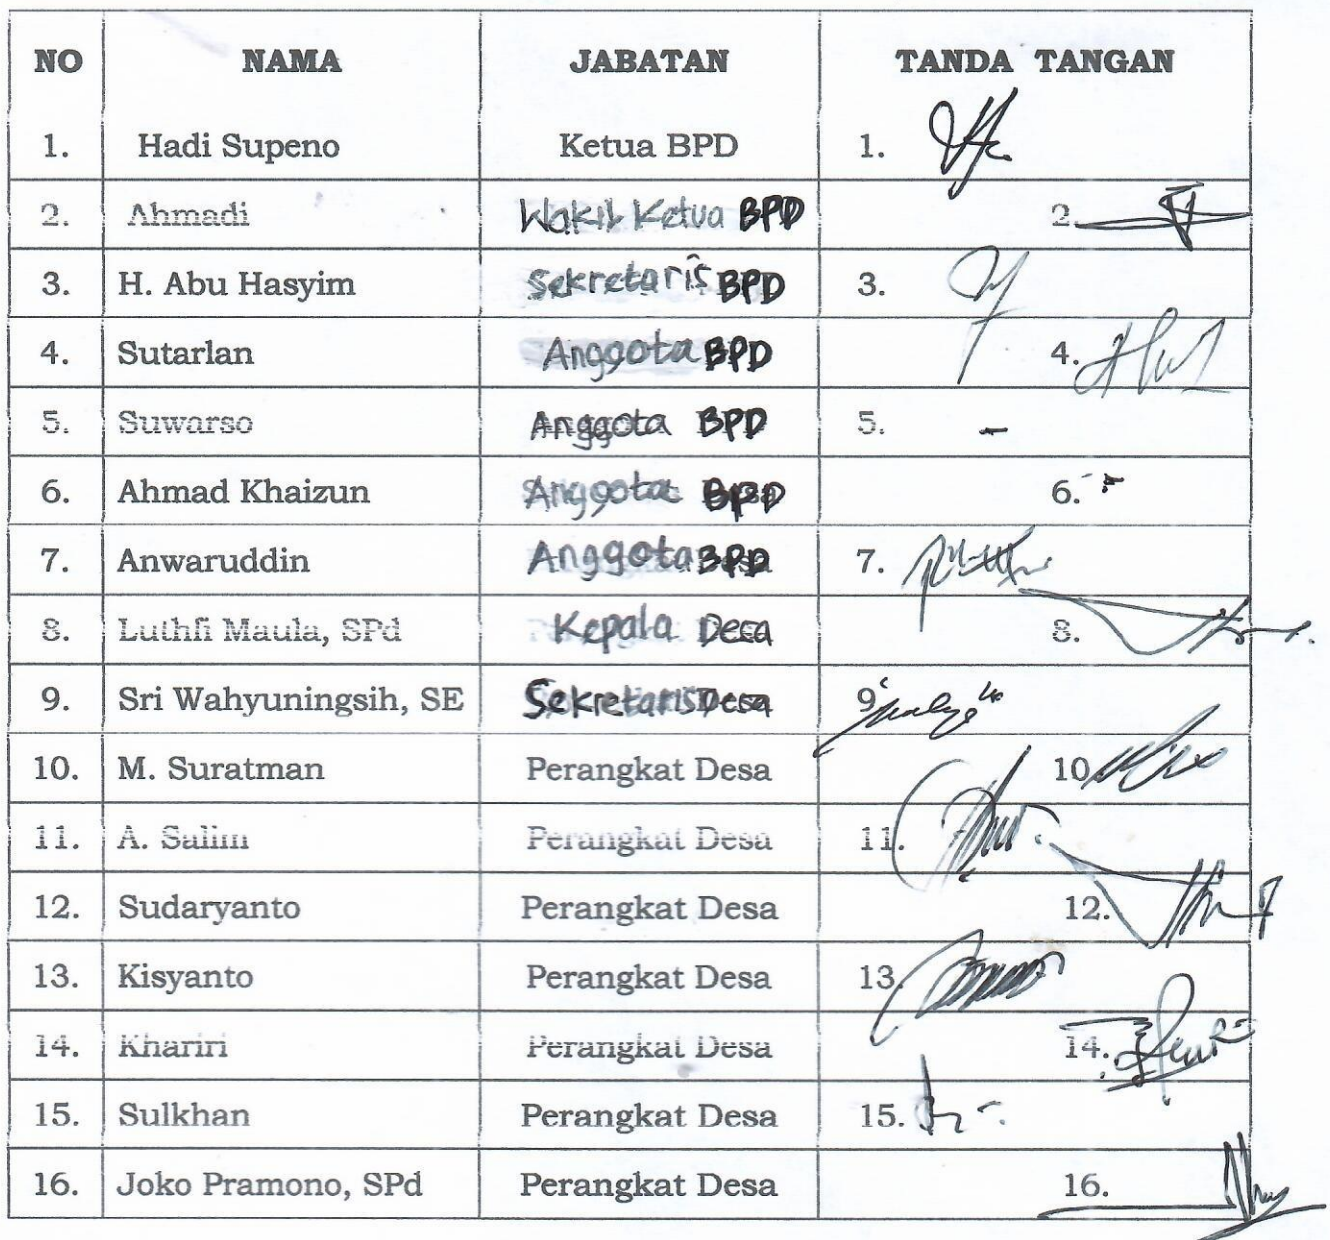 NO NAMA JABATAN TANDA TANGAN
1. Hadi Supeno Ketua BPD 1.
2. Ahmadi Wakil Ketua BPD 2.
3. H. Abu Hasyim Sekretaris BPD 3.
4. Sutarlan Anggota BPD 4.
5. Suwarso Anggota BPD 5. -
6. Ahmad Khaizun Anggota BPD 6. -
7. Anwaruddin Anggota BPD 7.
8. Luthfi Maula, SPd Kepala Desa 8.
9. Sri Wahyuningsih, SE Sekretaris Desa 9.
10. M. Suratman Perangkat Desa 10.
11. A. Salim Perangkat Desa 11.
12. Sudaryanto Perangkat Desa 12.
13. Kisyanto Perangkat Desa 13.
14. Khariri Perangkat Desa 14.
15. Sulkhan Perangkat Desa 15.
16. Joko Pramono, SPd Perangkat Desa 16.